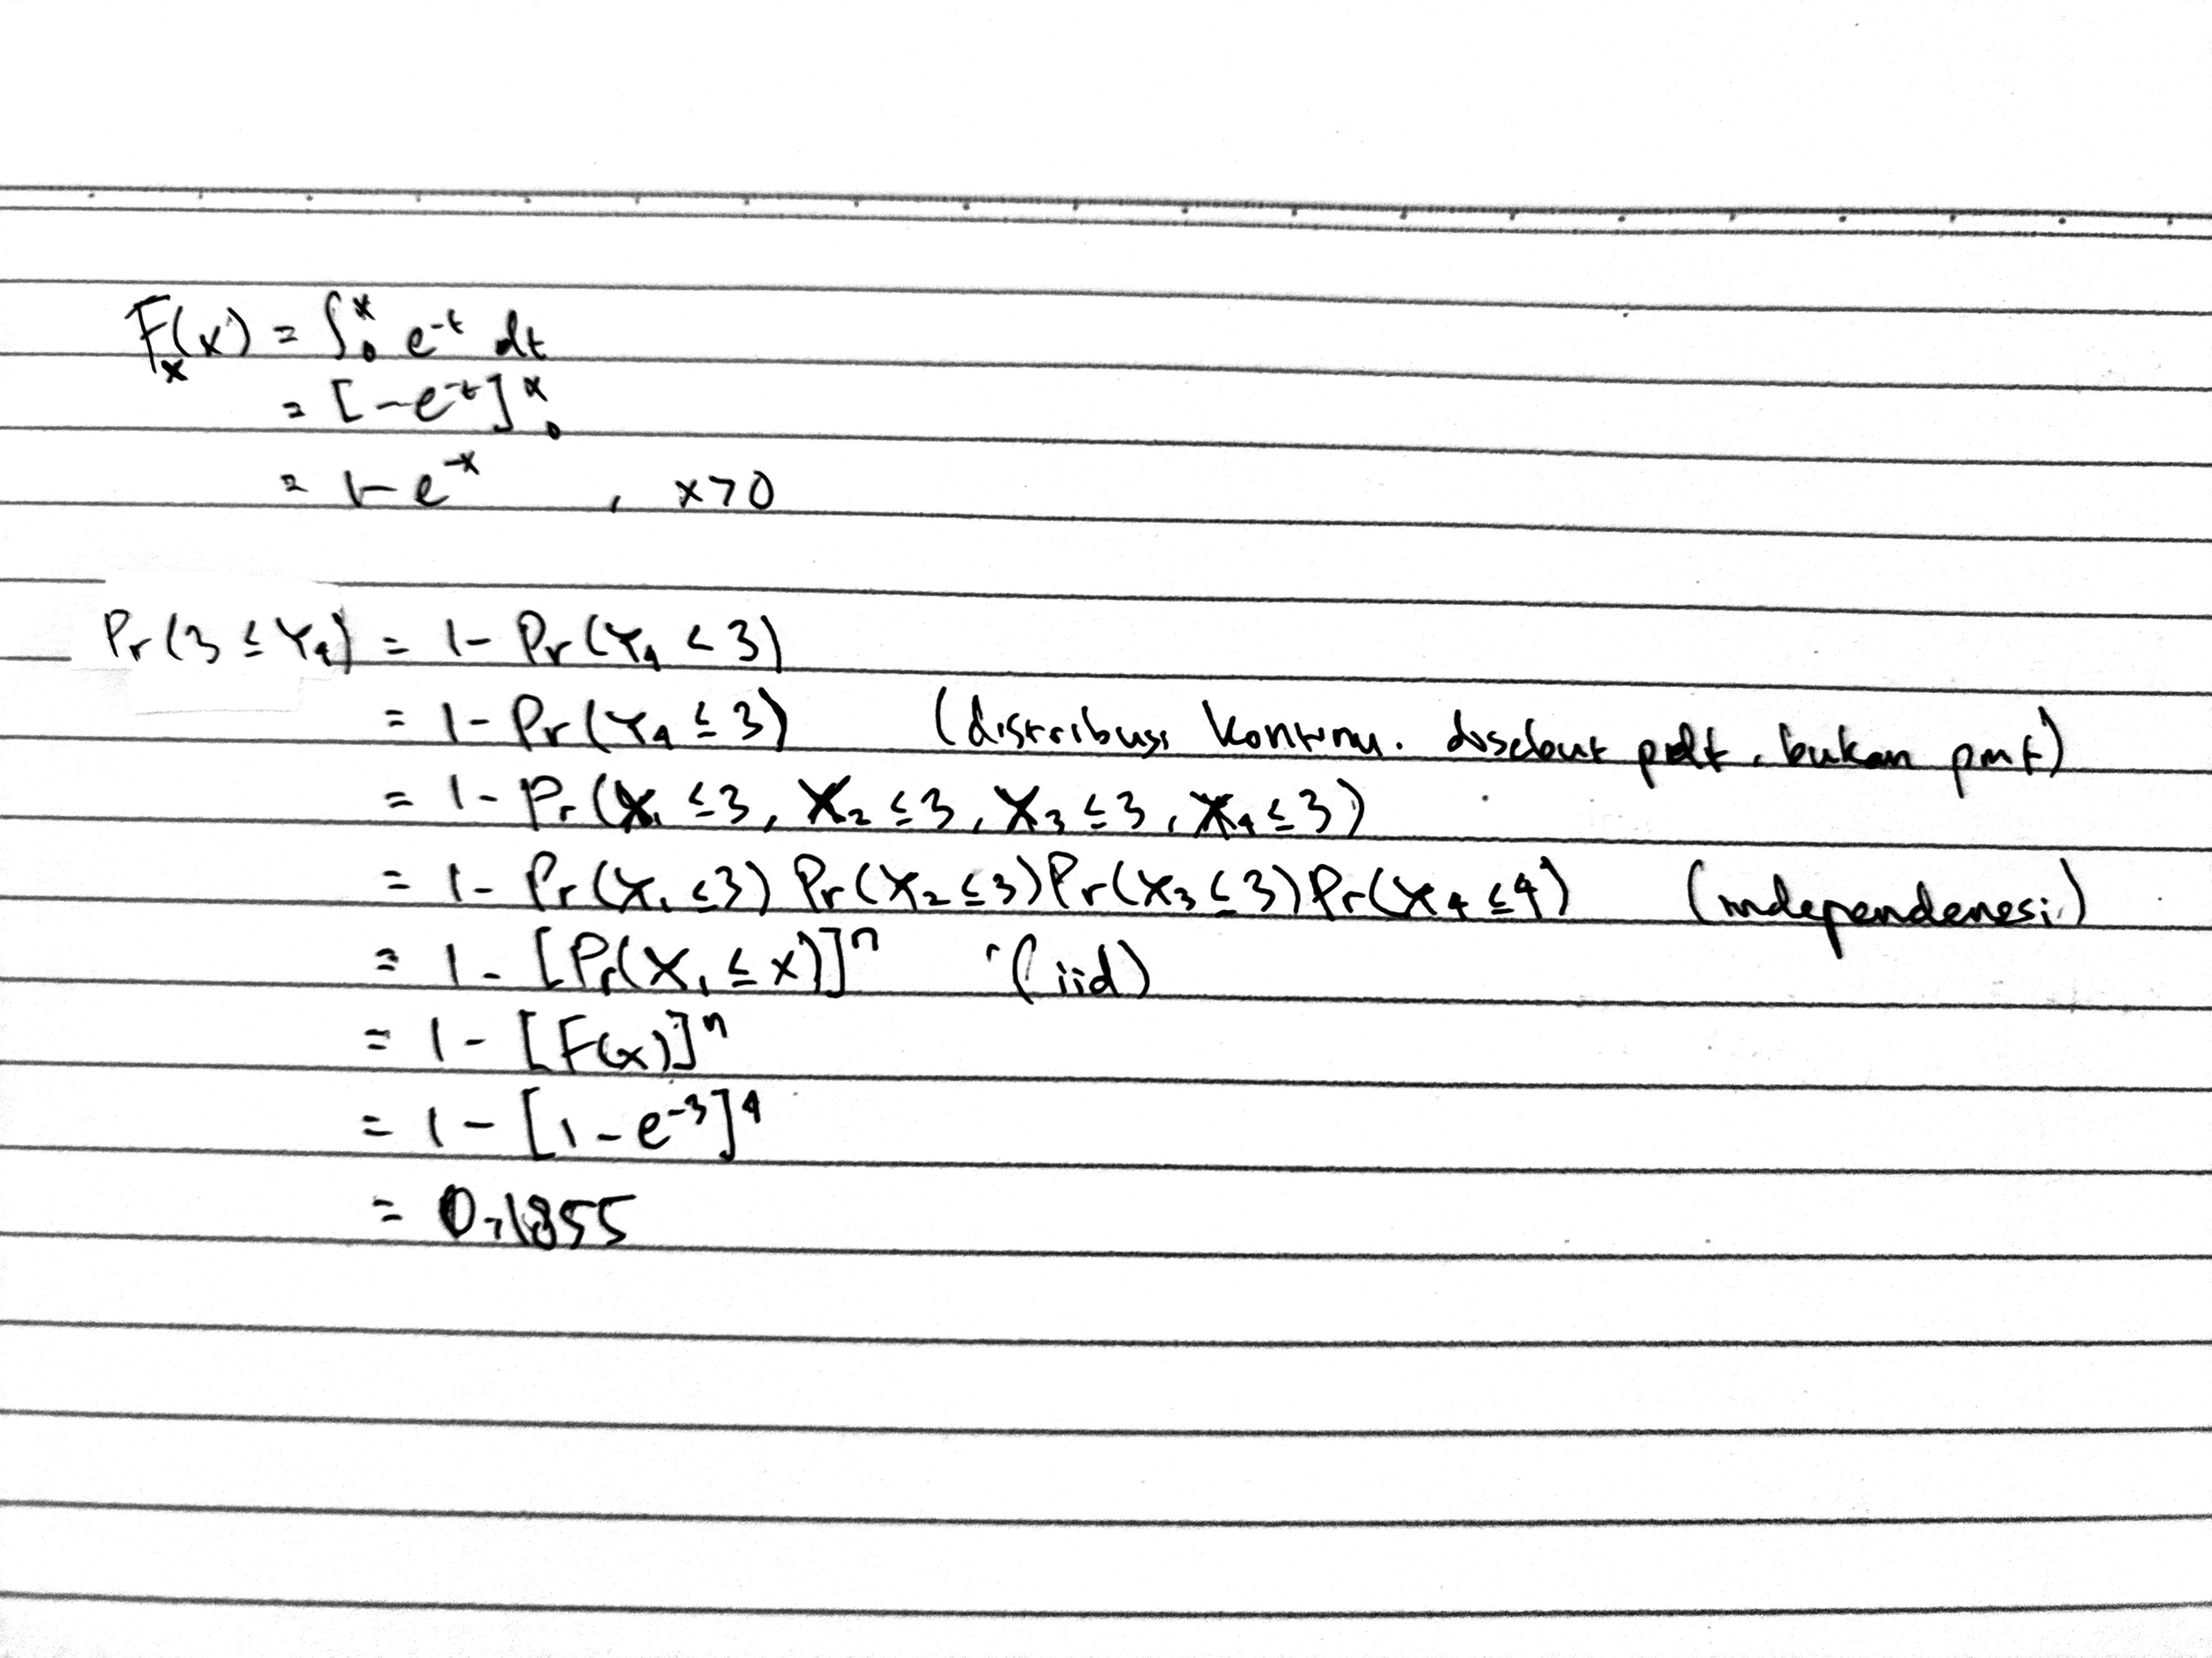 F_X(x) = ∫₀ˣ e^{-t} dt
= [-e^{-t}]₀ˣ
= 1-e^{-x} , x>0
Pr(3 ≤ Y₄) = 1 - Pr(Y₄ < 3)
= 1 - Pr(Y₄ ≤ 3) (distribusi kontinu. disebut pdf, bukan pmf)
= 1 - Pr(X₁ ≤ 3, X₂ ≤ 3, X₃ ≤ 3, X₄ ≤ 3)
= 1 - Pr(X₁ ≤ 3) Pr(X₂ ≤ 3) Pr(X₃ ≤ 3) Pr(X₄ ≤ 4) (independensi)
= 1 - [Pr(X₁ ≤ x)]ⁿ (iid)
= 1 - [F(x)]ⁿ
= 1 - [1 - e^{-3}]⁴
= 0,1855